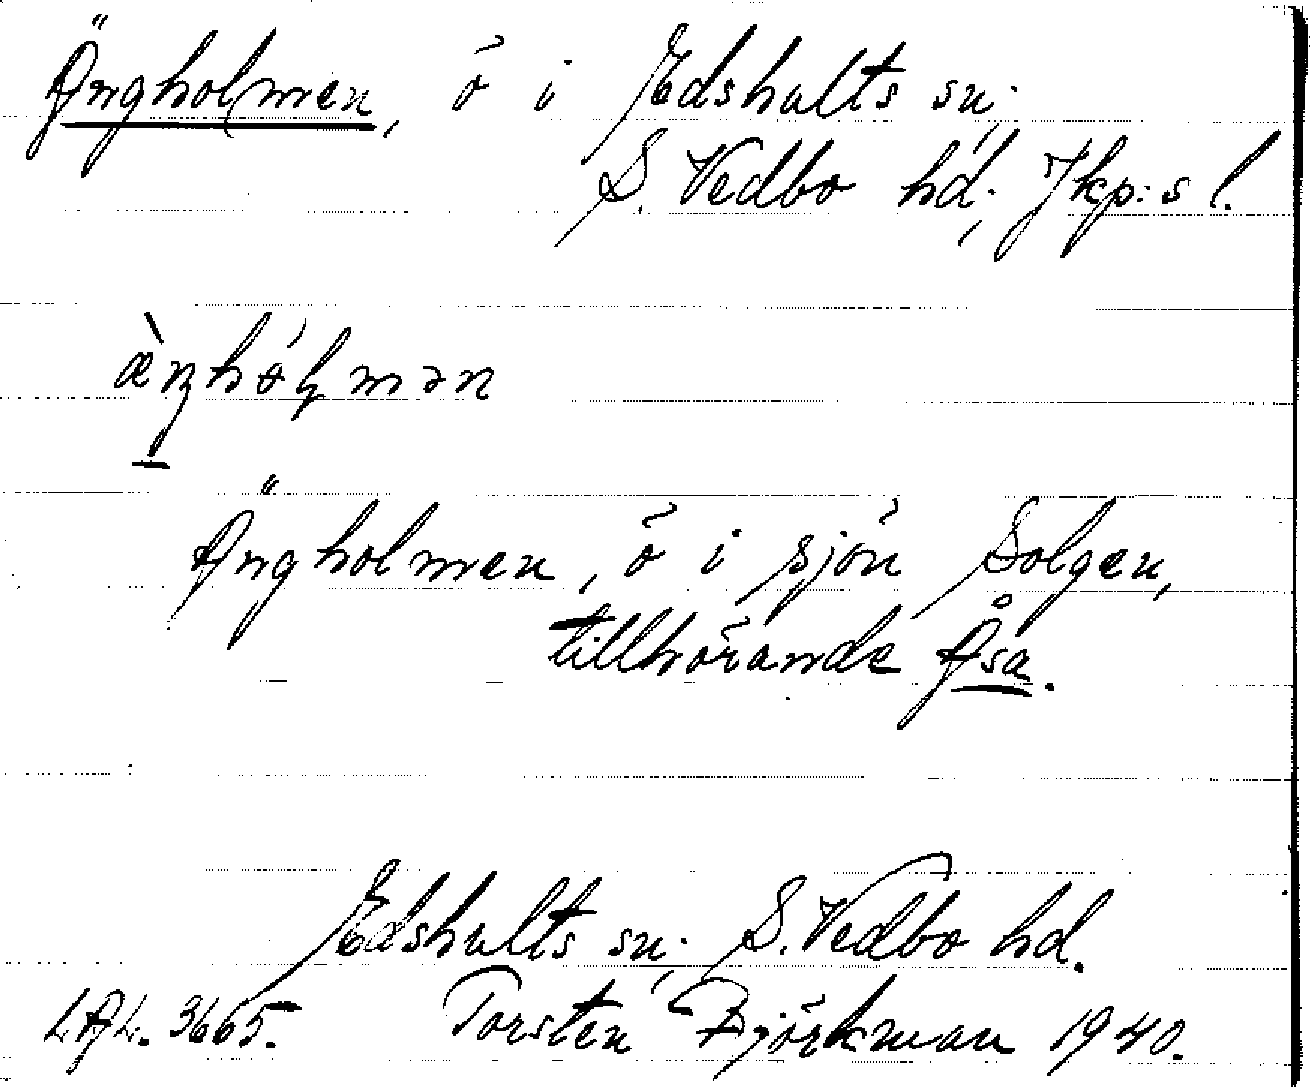 Ängholmen, ö i Edshults sn;
S. Vedbo hd; Jkp:s l.
Ängholmen, ö i sjön Solgen,
tillhörande Åsa.
Edshults sn; S. Vedbo hd.
LAL. 3665. Torsten Björkman 1940.